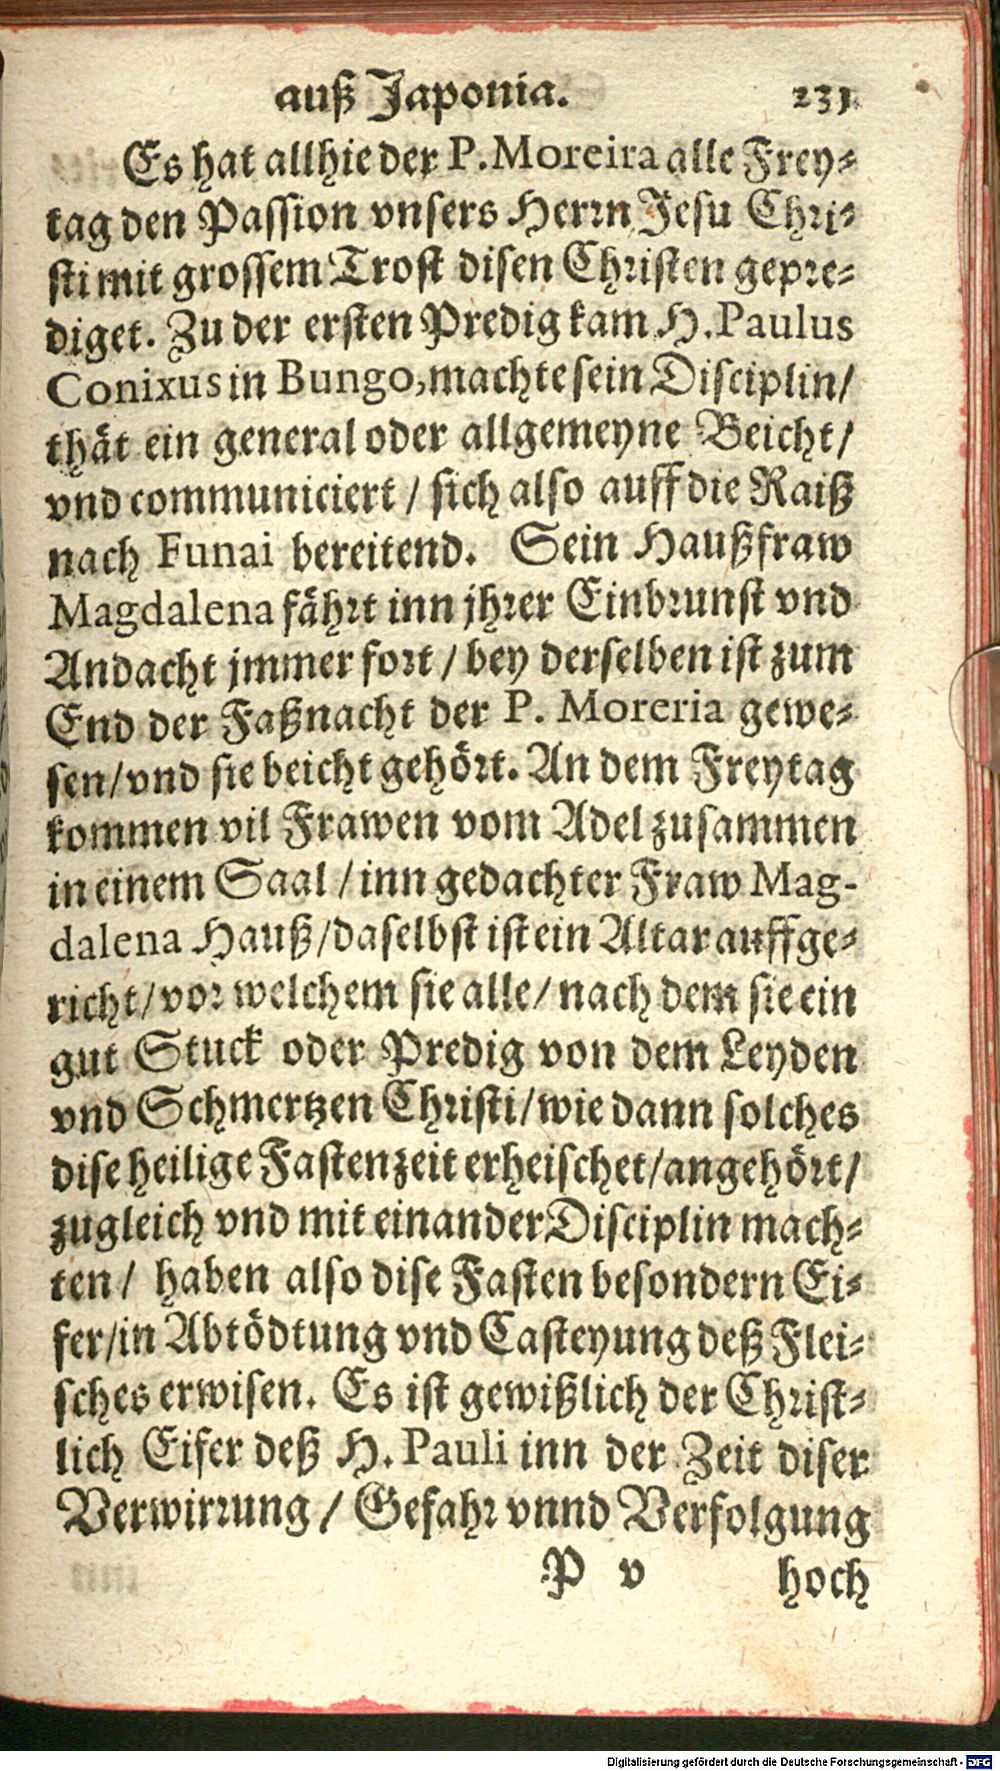 auß Japonia. 231
Es hat allhie der P. Moreira alle Frey-
tag den Passion vnsers Herrn Jesu Chri-
sti mit grossem Trost disen Christen gepre-
diget. Zu der ersten Predig kam H. Paulus
Conixus in Bungo, machte sein Disciplin/
thät ein general oder allgemeyne Beicht/
vnd communiciert / sich also auff die Raiß
nach Funai bereitend. Sein Haußfraw
Magdalena fährt inn jhrer Einbrunst vnd
Andacht jmmer fort / bey derselben ist zum
End der Faßnacht der P. Moreria gewe-
sen/vnd sie beicht gehört. An dem Freytag
kommen vil Frawen vom Adel zusammen
in einem Saal / inn gedachter Fraw Mag-
dalena Hauß/daselbst ist ein Altar auffge-
richt/vor welchem sie alle/nach dem sie ein
gut Stuck oder Predig von dem Leyden
vnd Schmertzen Christi/wie dann solches
dise heilige Fastenzeit erheischet/angehört/
zugleich vnd mit einander Disciplin mach-
ten/ haben also dise Fasten besondern Ei-
fer/in Abtödtung vnd Casteyung deß Flei-
sches erwisen. Es ist gewißlich der Christ-
lich Eifer deß H. Pauli inn der Zeit diser
Verwirrung / Gefahr vnnd Verfolgung
P v hoch
Digitalisierung gefördert durch die Deutsche Forschungsgemeinschaft - DFG